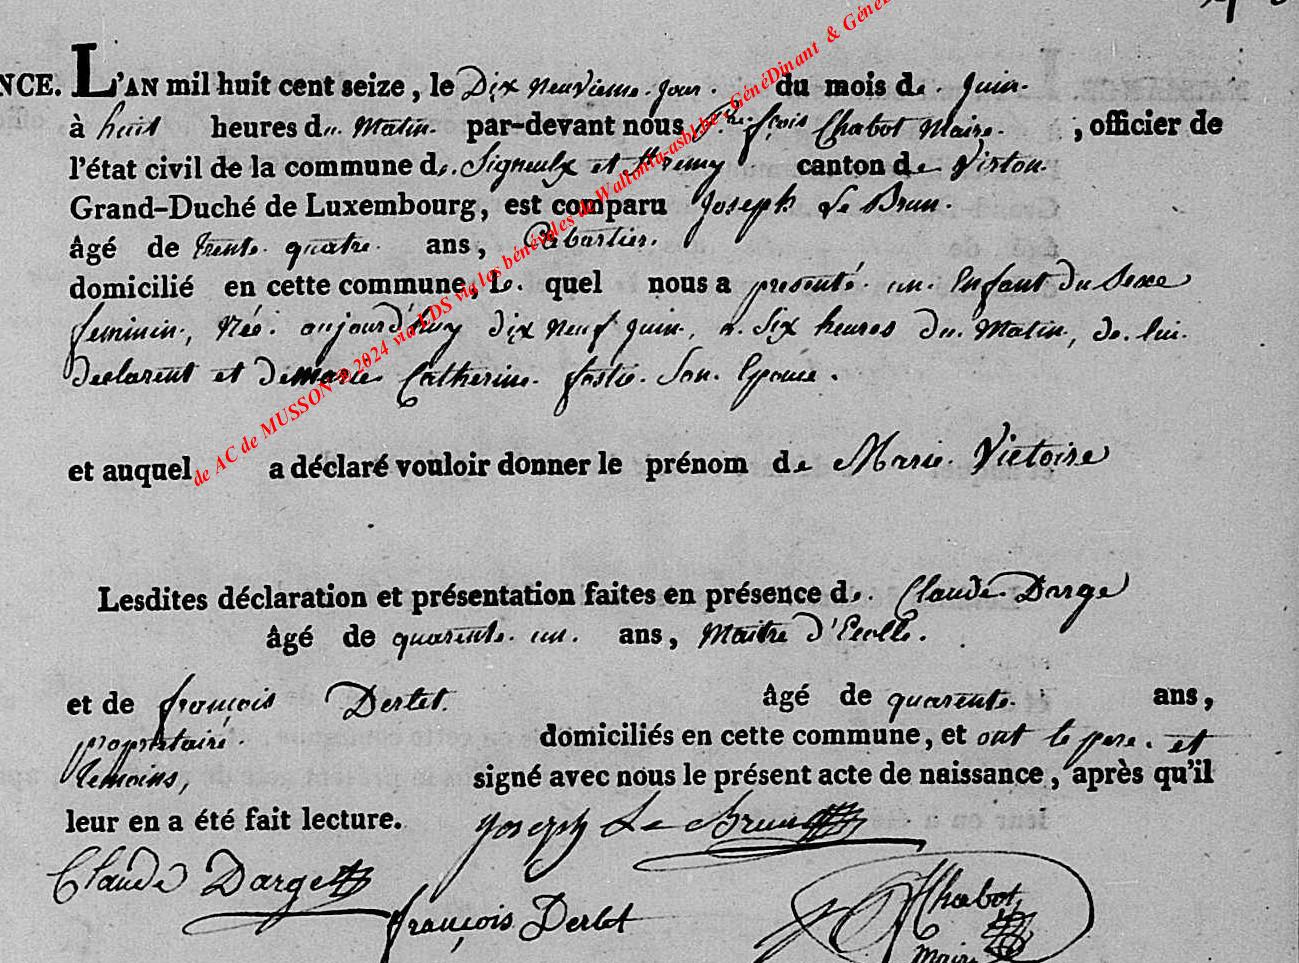 NCE. L'AN mil huit cent seize, le Dix neuvieme jour. du mois de Juin.
à huit heures du Matin. par-devant nous fçois Chabot Maire. , officier de
l'état civil de la commune de Signeulx et canton de Virton.
Grand-Duché de Luxembourg, est comparu Joseph Le Brun.
âgé de trente quatre ans, Cabartier.
domicilié en cette commune, Le quel nous a presenté un Enfant du Sexe
feminin, Née aujourd'huy dix neuf juin, a Six heures du Matin, de lui
declarent et de Marie Catherine son Epouse.
et auquel a déclaré vouloir donner le prénom de Marie Victoire
Lesdites déclaration et présentation faites en présence de Claude Darge
âgé de quarente un ans, Maitre d'Ecolle.
et de françois Derlet âgé de quarente ans,
propritaire domiciliés en cette commune, et ont le pere et
temoins, signé avec nous le présent acte de naissance, après qu'il
leur en a été fait lecture. Joseph Le Brun
Claude Darge
françois Derlet
Chabot
Maire
de AC de MUSSON © 2024 via LDS via les bénévoles de Wallonia-asbl.be - GénéDinant & Géné